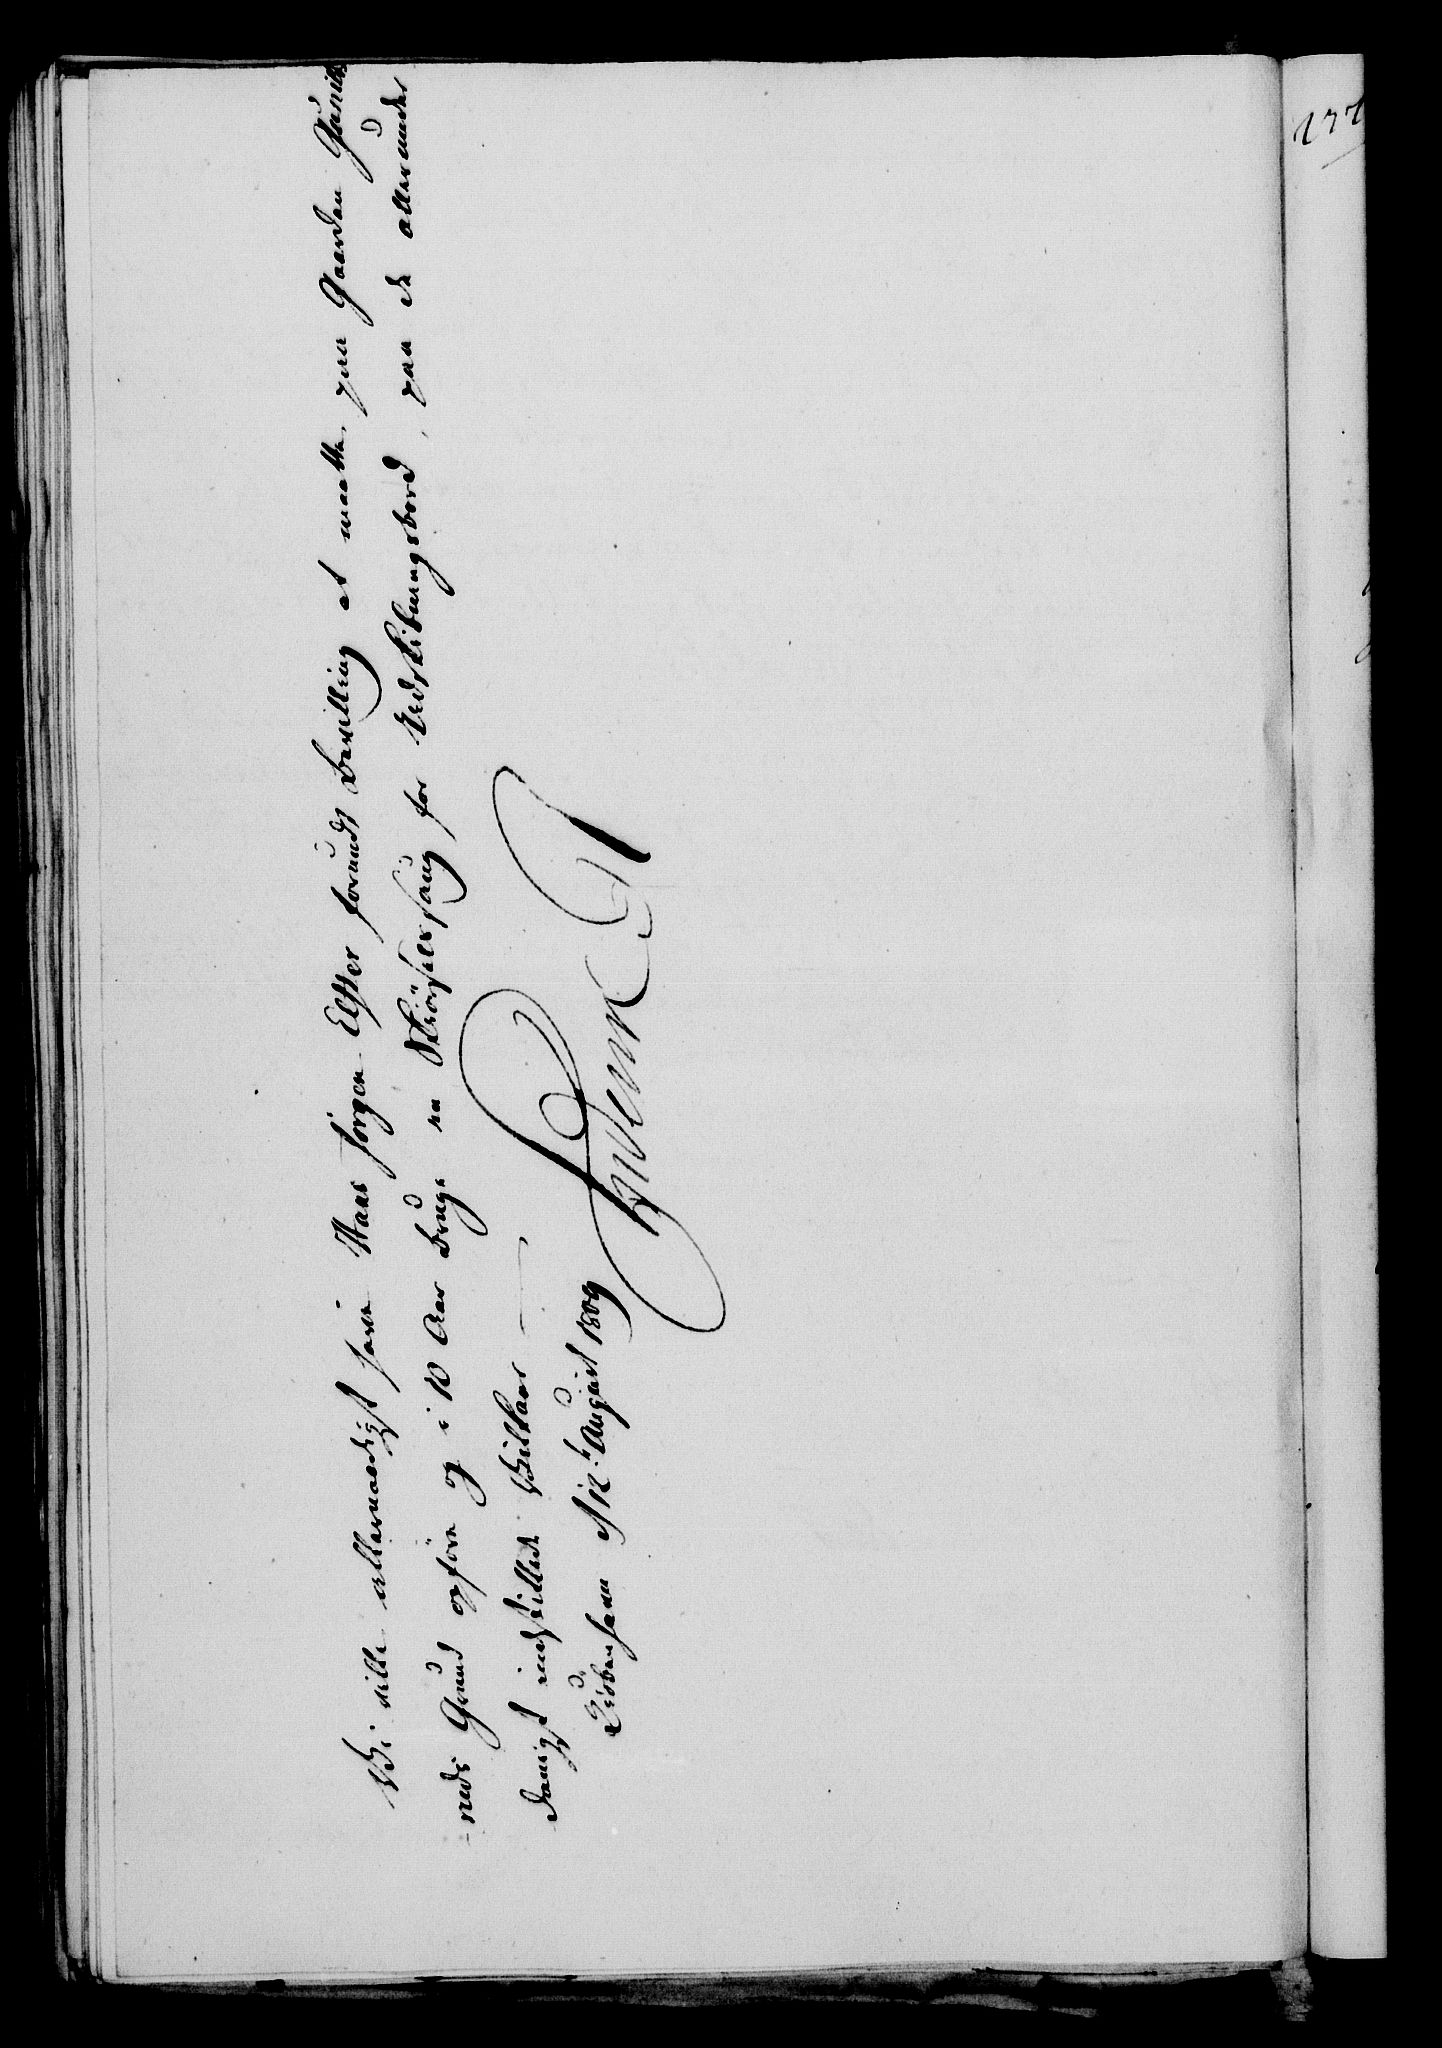 Vi ville allernaadigst have Hans Jørgen Elster forundt Bevilling at maatte, paa Gaarden
neds Grund opføre og i 10 Aar bruge en for Udskibningsbord, paa de allerunder
danigst indstillede Vilkaar
Kiöbenhavn d. 12t August 1809
Frederik R
177